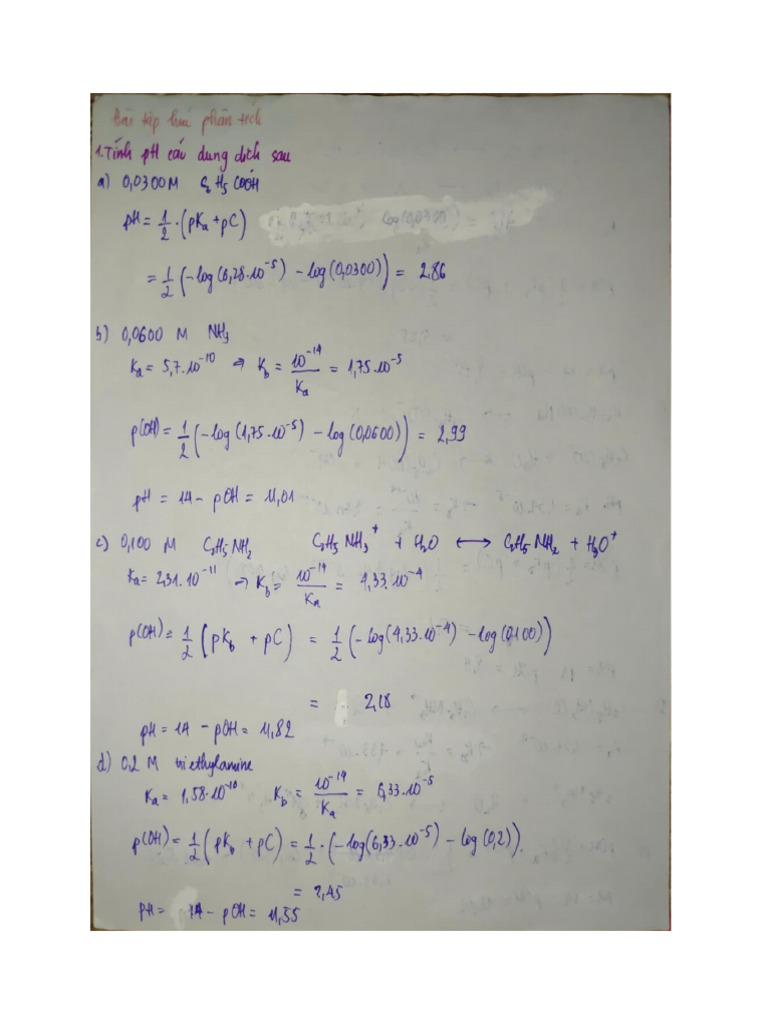 Bài tập hoá phân tích
1. Tính pH các dung dịch sau
a) 0,0300M C6H5COOH
pH = 1/2 · (pKa + pC)
= 1/2 (-log(6,28.10^-5) - log(0,0300)) = 2,86
b) 0,0600 M NH3
Ka = 5,7.10^-10 → Kb = 10^-14/Ka = 1,75.10^-5
p(OH) = 1/2 (-log(1,75.10^-5) - log(0,0600)) = 2,99
pH = 14 - pOH = 11,01
c) 0,100 M C2H5NH2 C2H5NH3^+ + H2O ⟷ C2H5NH2 + H3O^+
Ka = 2,31.10^-11 → Kb = 10^-14/Ka = 4,33.10^-4
p(OH) = 1/2 (pKb + pC) = 1/2 (-log(4,33.10^-4) - log(0,100))
= 2,18
pH = 14 - pOH = 11,82
d) 0,2 M triethylamine
Ka = 1,58.10^-10 Kb = 10^-14/Ka = 6,33.10^-5
p(OH) = 1/2 (pKb + pC) = 1/2 · (-log(6,33.10^-5) - log(0,2)).
= 2,45
pH = 14 - pOH = 11,55